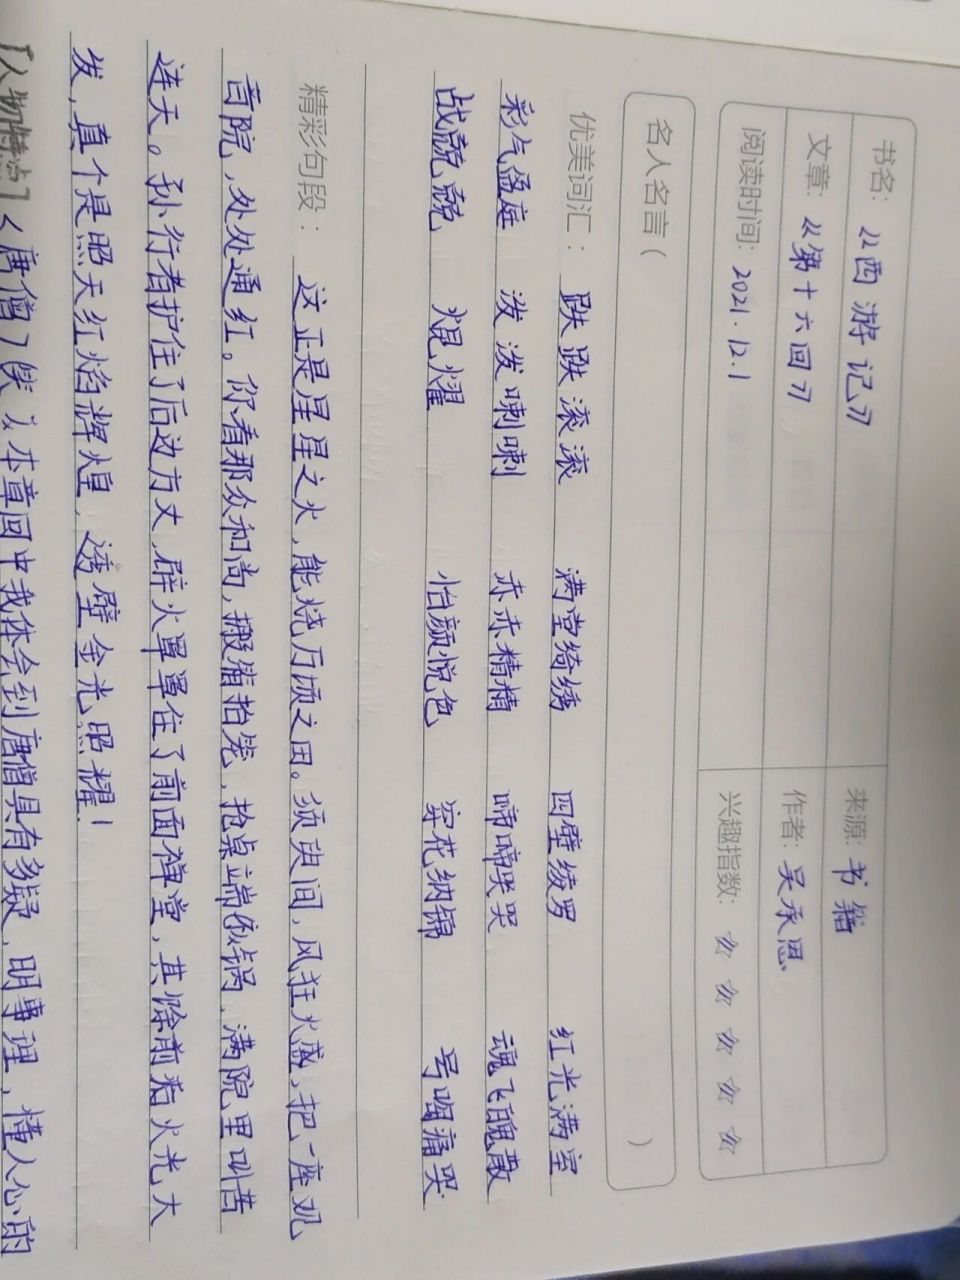 书名: 《西游记》 来源: 书籍
文章: 《第十六回》 作者: 吴承恩
阅读时间: 2021.12.1 兴趣指数: ☆ ☆ ☆ ☆ ☆
名人名言（ ）
优美词汇： 跌跌滚滚 满堂绮绣 四壁绫罗 红光满室
彩气盈庭 泼泼喇喇 赤赤精精 啼啼哭哭 魂飞魄散
战兢兢 焜耀 怡颜悦色 穿花纳锦 号啕痛哭
精彩句段： 这正是星星之火,能烧万顷之田。须臾间,风狂火盛,把一座观
音院,处处通红。你看那众和尚,搬箱抬笼,抢桌端锅,满院里叫苦
连天。孙行者护住了后边方丈,辟火罩罩住了前面禅堂,其除前后火光大
发,真个是照天红焰辉煌,透壁金光照耀!
「人物特点」<唐僧>从本章回中我体会到唐僧具有多疑,明事理,懂人心的